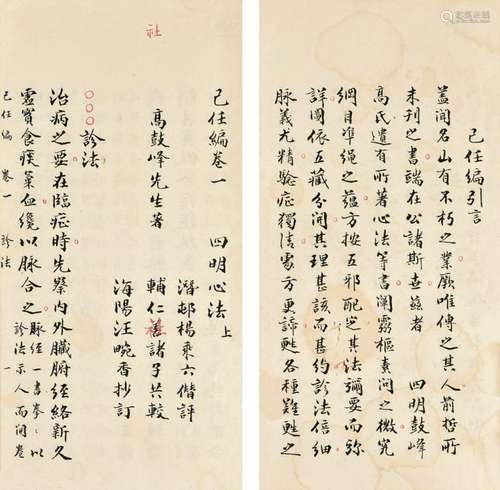 己任編引言
蓋聞名山有不朽之業願唯傳之其人前哲所
未刊之書端在公諸斯世茲者 四明鼓峰
高氏遺有所著心法等書闡靈樞素問之微究
綱目準繩之蘊方按五邪配定其法彌要而弥
詳圖依五藏分閒其理甚該而甚約診法倍细
脉義尤精驗症獨清處方更諦甦各種難甦之
社
己任編卷一 四明心法上
潛邨楊乘六僭評
高鼓峰先生著 輔仁社諸子共較
海陽汪畹香抄訂
○○○診法
治病之要在臨症時先察內外臟腑經絡新久
虛實食痰氣血纔以脉合之 脉經一書拳〻以
診法示人而開卷
己任編 卷一 診法 一